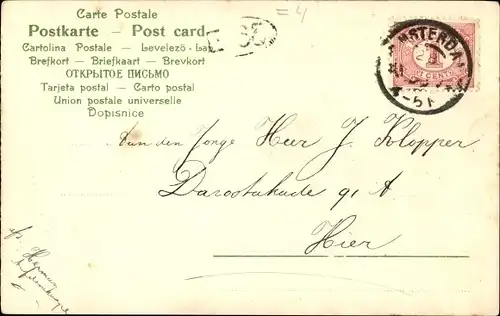 Carte Postale
Postkarte – Post card
Cartolina Postale – Levelező-La
Brefkort – Briefkaart – Brevkort
ОТКРЫТОЕ ПИСЬМО
Tarjeta postal – Carto postal
Union postale universelle
Dopisnice
=4
AMSTERDAM
1
CENT
4-5
Aan den Jonge Heer J. Klopper
91 A
Hier